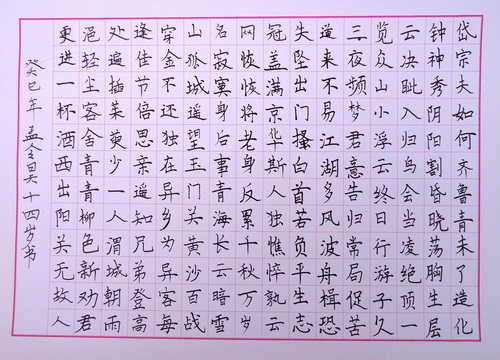 岱宗夫如何齐鲁青未了造化
钟神秀阴阳割昏晓荡胸生层
云决眦入归鸟会当凌绝顶一
览众山小浮云终日行游子久
三夜频梦君意告归常局促苦
道来不易江湖多风波舟楫恐
失坠出门搔白首若负平生志
冠盖满京华斯人独憔悴孰云
网恢恢将老身反累千秋万岁
名寂寞身后事青海长云暗雪
山孤城遥望玉门关黄沙百战
穿金不还独在异乡为异客每
逢佳节倍思亲遥知兄弟登高
处遍插茱萸少一人渭城朝雨
浥轻尘客舍青青柳色新劝君
更进一杯酒西出阳关无故人
癸巳年 孟令昊十四岁书